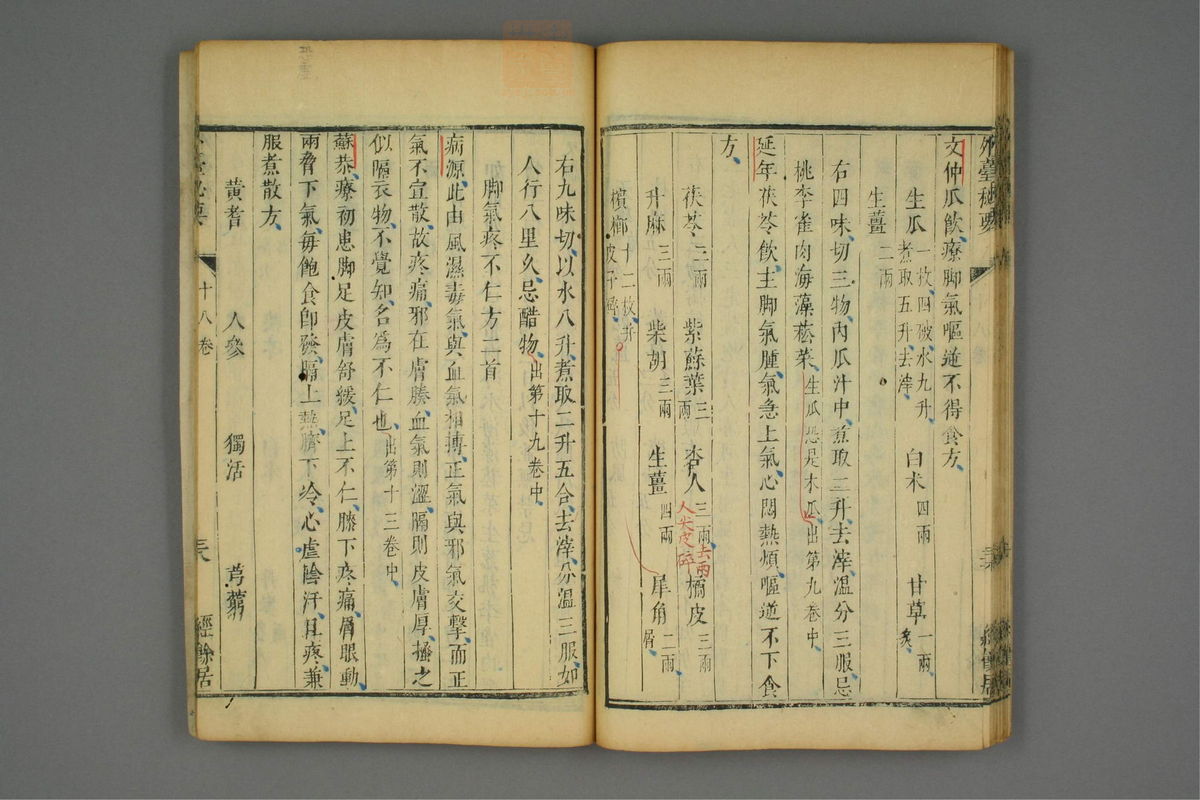 外臺秘要
文仲瓜飲療脚氣嘔逆不得食方
生瓜 一枚四破水九升煮取五升去滓 白米 四兩 甘草 一兩炙
生薑 二兩
右四味切三物內瓜汁中煮取三升去滓溫分三服忌
桃李雀肉海藻菘菜 生瓜恐是木瓜出第九卷中
延年茯苓飲主脚氣腫氣急上氣心悶熱煩嘔逆不下食
方
茯苓 三兩 紫蘇葉 三兩 杏人 三兩 去兩人尖皮碎 橘皮 三兩
升麻 三兩 柴胡 三兩 生薑 四兩 犀角 二兩屑
檳榔 十二枚并皮子碎
右九味切以水八升煮取二升五合去滓分溫三服如
人行八里久忌醋物 出第十九卷中
脚氣疼不仁方二首
病源此由風濕毒氣與血氣相搏正氣與邪氣交擊而正
氣不宣散故疼痛邪在膚腠血氣則澀隔則皮膚厚搔之
似隔衣物不覺知名為不仁也 出第十三卷中
蘇恭療初患脚足皮膚舒緩足上不仁膝下疼痛眉眼動
兩脅下氣每飽食即發膈上熱臍下冷心虛陰汗且疼兼
服煮散方
黃耆 人參 獨活 芎藭
十八卷
經餘居